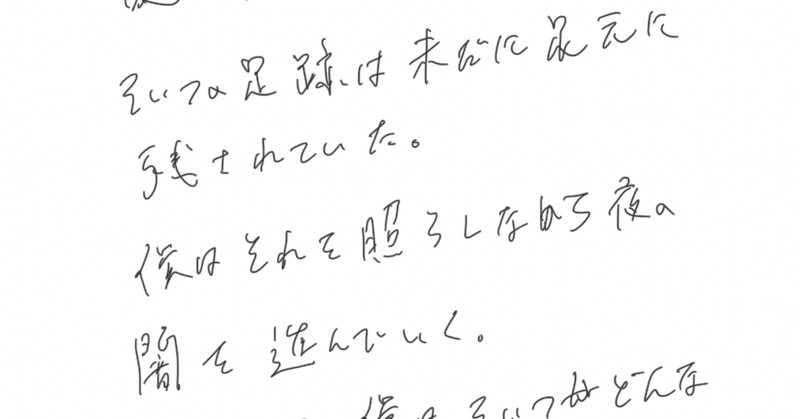 そいつの足跡は未だに足元に
残されていた。
僕はそれを照らしながら夜の
闇を進んでいく。
僕はそいつがどんな